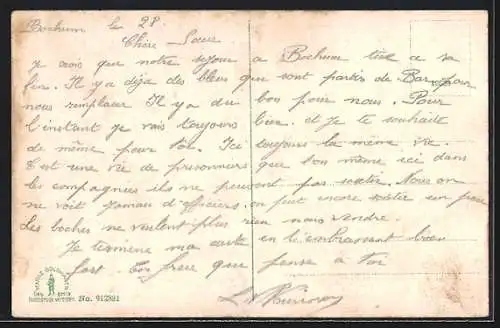 Bochum le 28
Chère Soeur
Je crois que notre séjour a Bochum tire a sa
fin. Il y a déja des bleus que sont partis de Bar pour
nous remplacer Il y a du bon pour nous. Pour
l'instant je vais toujours bien et je te souhaite
de même pour toi. Ici toujours la même vie.
C'est une vie de prisonniers que bon même ici dans
les compagnies ils ne peuvent pas sortir. Nous on
ne voit jamais d'officiers on peut encore sortir un peu
Les boches ne veulent plus rien nous vendre.
Je termine ma carte en t'embrassant bien
fort. Ton frère que pense à toi
No. 912881